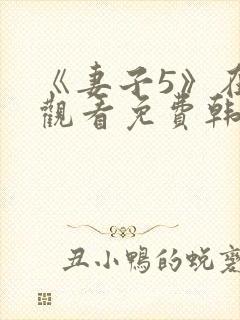 《妻子5》在
觀看免費韩
丑小鴨的蜕變